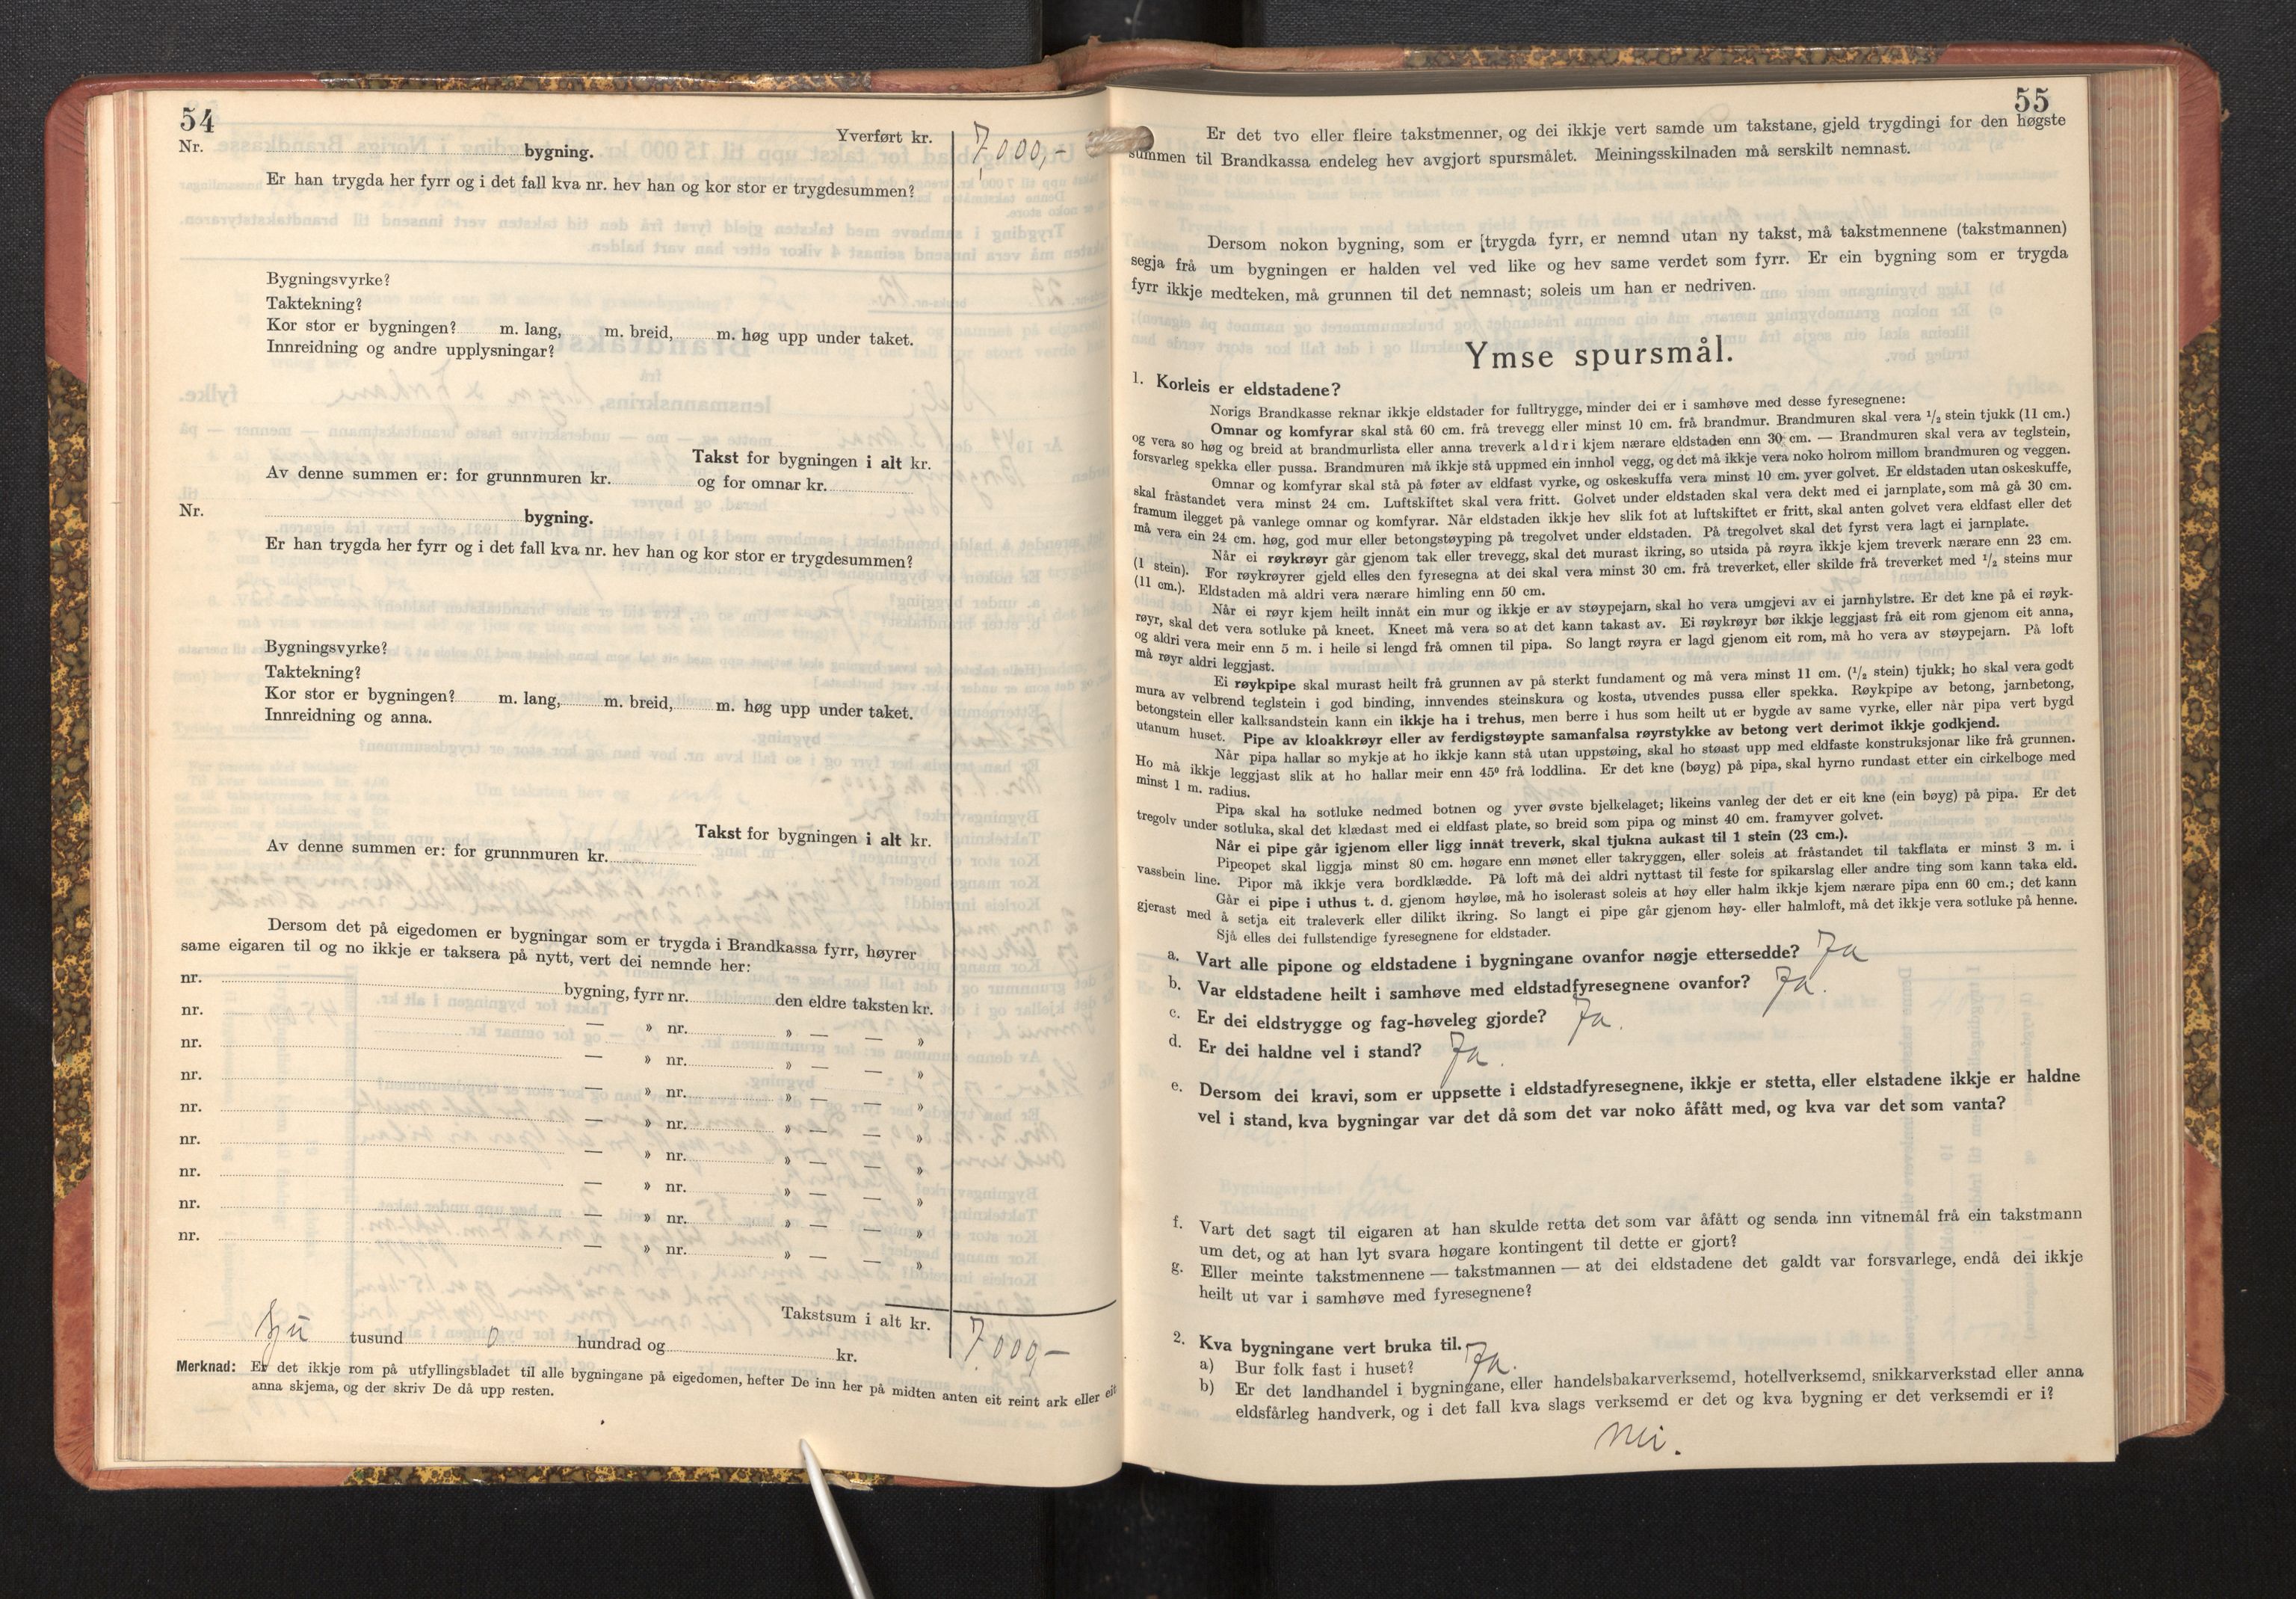 54
Yverført kr. 7000,-
Nr. bygning.
Er han trygda her fyrr og i det fall kva nr. hev han og kor stor er trygdesummen?
Bygningsvyrke?
Taktekning?
Kor stor er bygningen? m. lang, m. breid, m. høg upp under taket.
Innreidning og andre upplysningar?
Takst for bygningen i alt kr.
Av denne summen er: for grunnmuren kr. og for omnar kr.
Nr. bygning.
Er han trygda her fyrr og i det fall kva nr. hev han og kor stor er trygdesummen?
Bygningsvyrke?
Taktekning?
Kor stor er bygningen? m. lang, m. breid, m. høg upp under taket.
Innreidning og anna.
Takst for bygningen i alt kr.
Av denne summen er: for grunnmuren kr.
Dersom det på eigedomen er bygningar som er trygda i Brandkassa fyrr, høyrer
same eigaren til og no ikkje er taksera på nytt, vert dei nemnde her:
nr. bygning, fyrr nr. den eldre taksten kr.
nr. — » nr. » — — »
nr. — » nr. » — — »
nr. — » nr. » — — »
nr. — » nr. » — — »
nr. — » nr. » — — »
nr. — » nr. » — — »
nr. — » nr. » — — »
nr. — » nr. » — — »
Takstsum i alt kr. 7000,-
Sju tusund 0 hundrad og kr.
Merknad: Er det ikkje rom på utfyllingsbladet til alle bygningane på eigedomen, hefter De inn her på midten anten eit reint ark eller eit
anna skjema, og der skriv De då upp resten.
55
Er det tvo eller fleire takstmenner, og dei ikkje vert samde um takstane, gjeld trygdingi for den høgste
summen til Brandkassa endeleg hev avgjort spursmålet. Meiningsskilnaden må serskilt nemnast.
Dersom nokon bygning, som er trygda fyrr, er nemnd utan ny takst, må takstmennene (takstmannen)
segja frå um bygningen er halden vel ved like og hev same verdet som fyrr. Er ein bygning som er trygda
fyrr ikkje medteken, må grunnen til det nemnast; soleis um han er nedriven.
Ymse spursmål.
1. Korleis er eldstadene?
Norigs Brandkasse reknar ikkje eldstader for fulltrygge, minder dei er i samhøve med desse fyresegnene:
Omnar og komfyrar skal stå 60 cm. frå trevegg eller minst 10 cm. frå brandmur. Brandmuren skal vera 1/2 stein tjukk (11 cm.)
og vera so høg og breid at brandmurlista eller anna treverk aldri kjem nærare eldstaden enn 30 cm. — Brandmuren skal vera av teglstein,
forsvarleg spekka eller pussa. Brandmuren må ikkje stå uppmed ein innhol vegg, og det må ikkje vera noko holrom millom brandmuren og veggen.
Omnar og komfyrar skal stå på føter av eldfast vyrke, og oskeskuffa vera minst 10 cm. yver golvet. Er eldstaden utan oskeskuffe,
skal fråstandet vera minst 24 cm. Luftskiftet skal vera fritt. Golvet under eldstaden skal vera dekt med ei jarnplate, som må gå 30 cm.
framum ilegget på vanlege omnar og komfyrar. Når eldstaden ikkje hev slik fot at luftskiftet er fritt, skal anten golvet vera eldfast eller det
må vera ein 24 cm. høg, god mur eller betongstøyping på tregolvet under eldstaden. På tregolvet skal det fyrst vera lagt ei jarnplate.
Når ei røykrøyr går gjenom tak eller trevegg, skal det murast ikring, so utsida på røyra ikkje kjem treverk nærare enn 23 cm.
(1 stein). For røykrøyrer gjeld elles den fyresegna at dei skal vera minst 30 cm. frå treverket, eller skilde frå treverket med 1/2 steins mur
(11 cm.). Eldstaden må aldri vera nærare himling enn 50 cm.
Når ei røyr kjem heilt innåt ein mur og ikkje er av støypejarn, skal ho vera umgjevi av ei jarnhylstre. Er det kne på ei røyk-
røyr, skal det vera sotluke på kneet. Kneet må vera so at det kann takast av. Ei røykrøyr bør ikkje leggjast frå eit rom gjenom eit anna,
og aldri vera meir enn 5 m. i heile si lengd frå omnen til pipa. So langt røyra er lagd gjenom eit rom, må ho vera av støypejarn. På loft
må røyr aldri leggjast.
Ei røykpipe skal murast heilt frå grunnen av på sterkt fundament og må vera minst 11 cm. (1/2 stein) tjukk; ho skal vera godt
mura av velbrend teglstein i god binding, innvendes steinskura og kosta, utvendes pussa eller spekka. Røykpipe av betong, jarnbetong,
betongstein eller kalksandstein kann ein ikkje ha i trehus, men berre i hus som heilt ut er bygde av same vyrke, eller når pipa vert bygd
utanum huset. Pipe av kloakkrøyr eller av ferdigstøypte samanfalsa røyrstykke av betong vert derimot ikkje godkjend.
Når pipa hallar so mykje at ho ikkje kann stå utan uppstøing, skal ho støast upp med eldfaste konstruksjonar like frå grunnen.
Ho må ikkje leggjast slik at ho hallar meir enn 45° frå loddlina. Er det kne (bøyg) på pipa, skal hyrno rundast etter ein cirkelboge med
minst 1 m. radius.
Pipa skal ha sotluke nedmed botnen og yver øvste bjelkelaget; likeins vanleg der det er eit kne (ein bøyg) på pipa. Er det
tregolv under sotluka, skal det klædast med ei eldfast plate, so breid som pipa og minst 40 cm. framyver golvet.
Når ei pipe går igjenom eller ligg innåt treverk, skal tjukna aukast til 1 stein (23 cm.).
Pipeopet skal liggja minst 80 cm. høgare enn mønet eller takryggen, eller soleis at fråstandet til takflata er minst 3 m. i
vassbein line. Pipor må ikkje vera bordklædde. På loft må dei aldri nyttast til feste for spikarslag eller andre ting som kann taka eld.
Går ei pipe i uthus t. d. gjenom høyløe, må ho isolerast soleis at høy eller halm ikkje kjem nærare pipa enn 60 cm.; det kann
gjerast med å setja eit traleverk eller dilikt ikring. So langt ei pipe går gjenom høy- eller halmloft, må det ikkje vera sotluke på henne.
Sjå elles dei fullstendige fyresegnene for eldstader.
a. Vart alle pipone og eldstadene i bygningane ovanfor nøgje ettersedde? Ja
b. Var eldstadene heilt i samhøve med eldstadfyresegnene ovanfor? Ja.
c. Er dei eldstrygge og fag-høveleg gjorde? Ja.
d. Er dei haldne vel i stand? Ja.
e. Dersom dei kravi, som er uppsette i eldstadfyresegnene, ikkje er stetta, eller elstadene ikkje er haldne
vel i stand, kva bygningar var det då som det var noko åfått med, og kva var det som vanta?
f. Vart det sagt til eigaren at han skulde retta det som var åfått og senda inn vitnemål frå ein takstmann
um det, og at han lyt svara høgare kontingent til dette er gjort?
g. Eller meinte takstmennene — takstmannen — at dei eldstadene det galdt var forsvarlege, endå dei ikkje
heilt ut var i samhøve med fyresegnene?
2. Kva bygningane vert bruka til.
a) Bur folk fast i huset? Ja.
b) Er det landhandel i bygningane, eller handelsbakarverksemd, hotellverksemd, snikkarverkstad eller anna
eldsfårleg handverk, og i det fall kva slags verksemd er det og kva bygning er det verksemdi er i?
Nei.